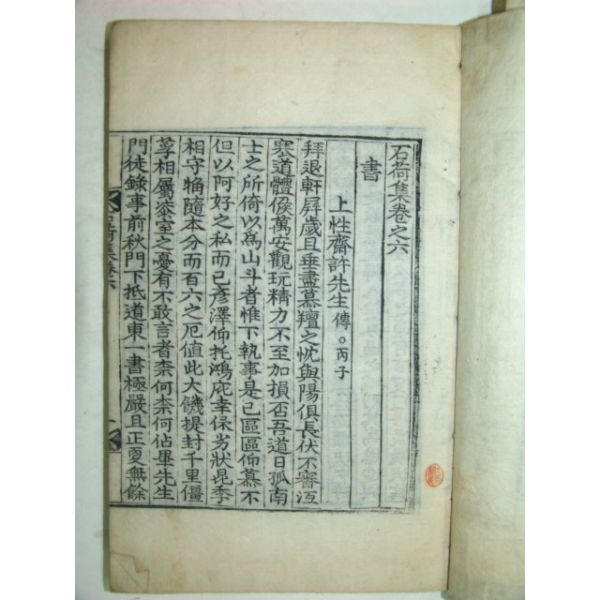 石荷集卷之六
書
上性齋許先生 傳 ○ 丙子
拜退軒屛歲且垂盡慕羶之忱與陽俱長伏不審沍
寒道體候萬安觀玩精力不至加損否吾道日孤南
士之所倚以爲山斗者惟下執事是已區區仰慕不
但以阿好之私而已彦澤仰托鴻庇幸保劣狀昆季
相守觕隨本分而百六之厄値此大饑提封千里僵
莩相屬漆室之憂有不敢言者柰何柰何佔畢先生
門徒錄事前秋門下抵道東一書極嚴且正更無餘
石荷集卷六